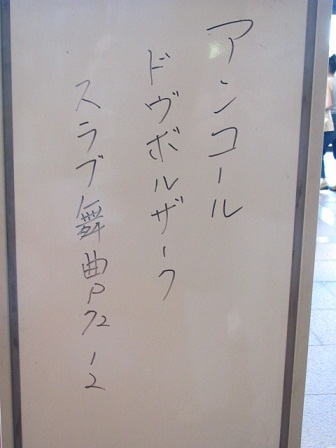 アンコール
ドヴボルザーク
スラブ舞曲P72-2